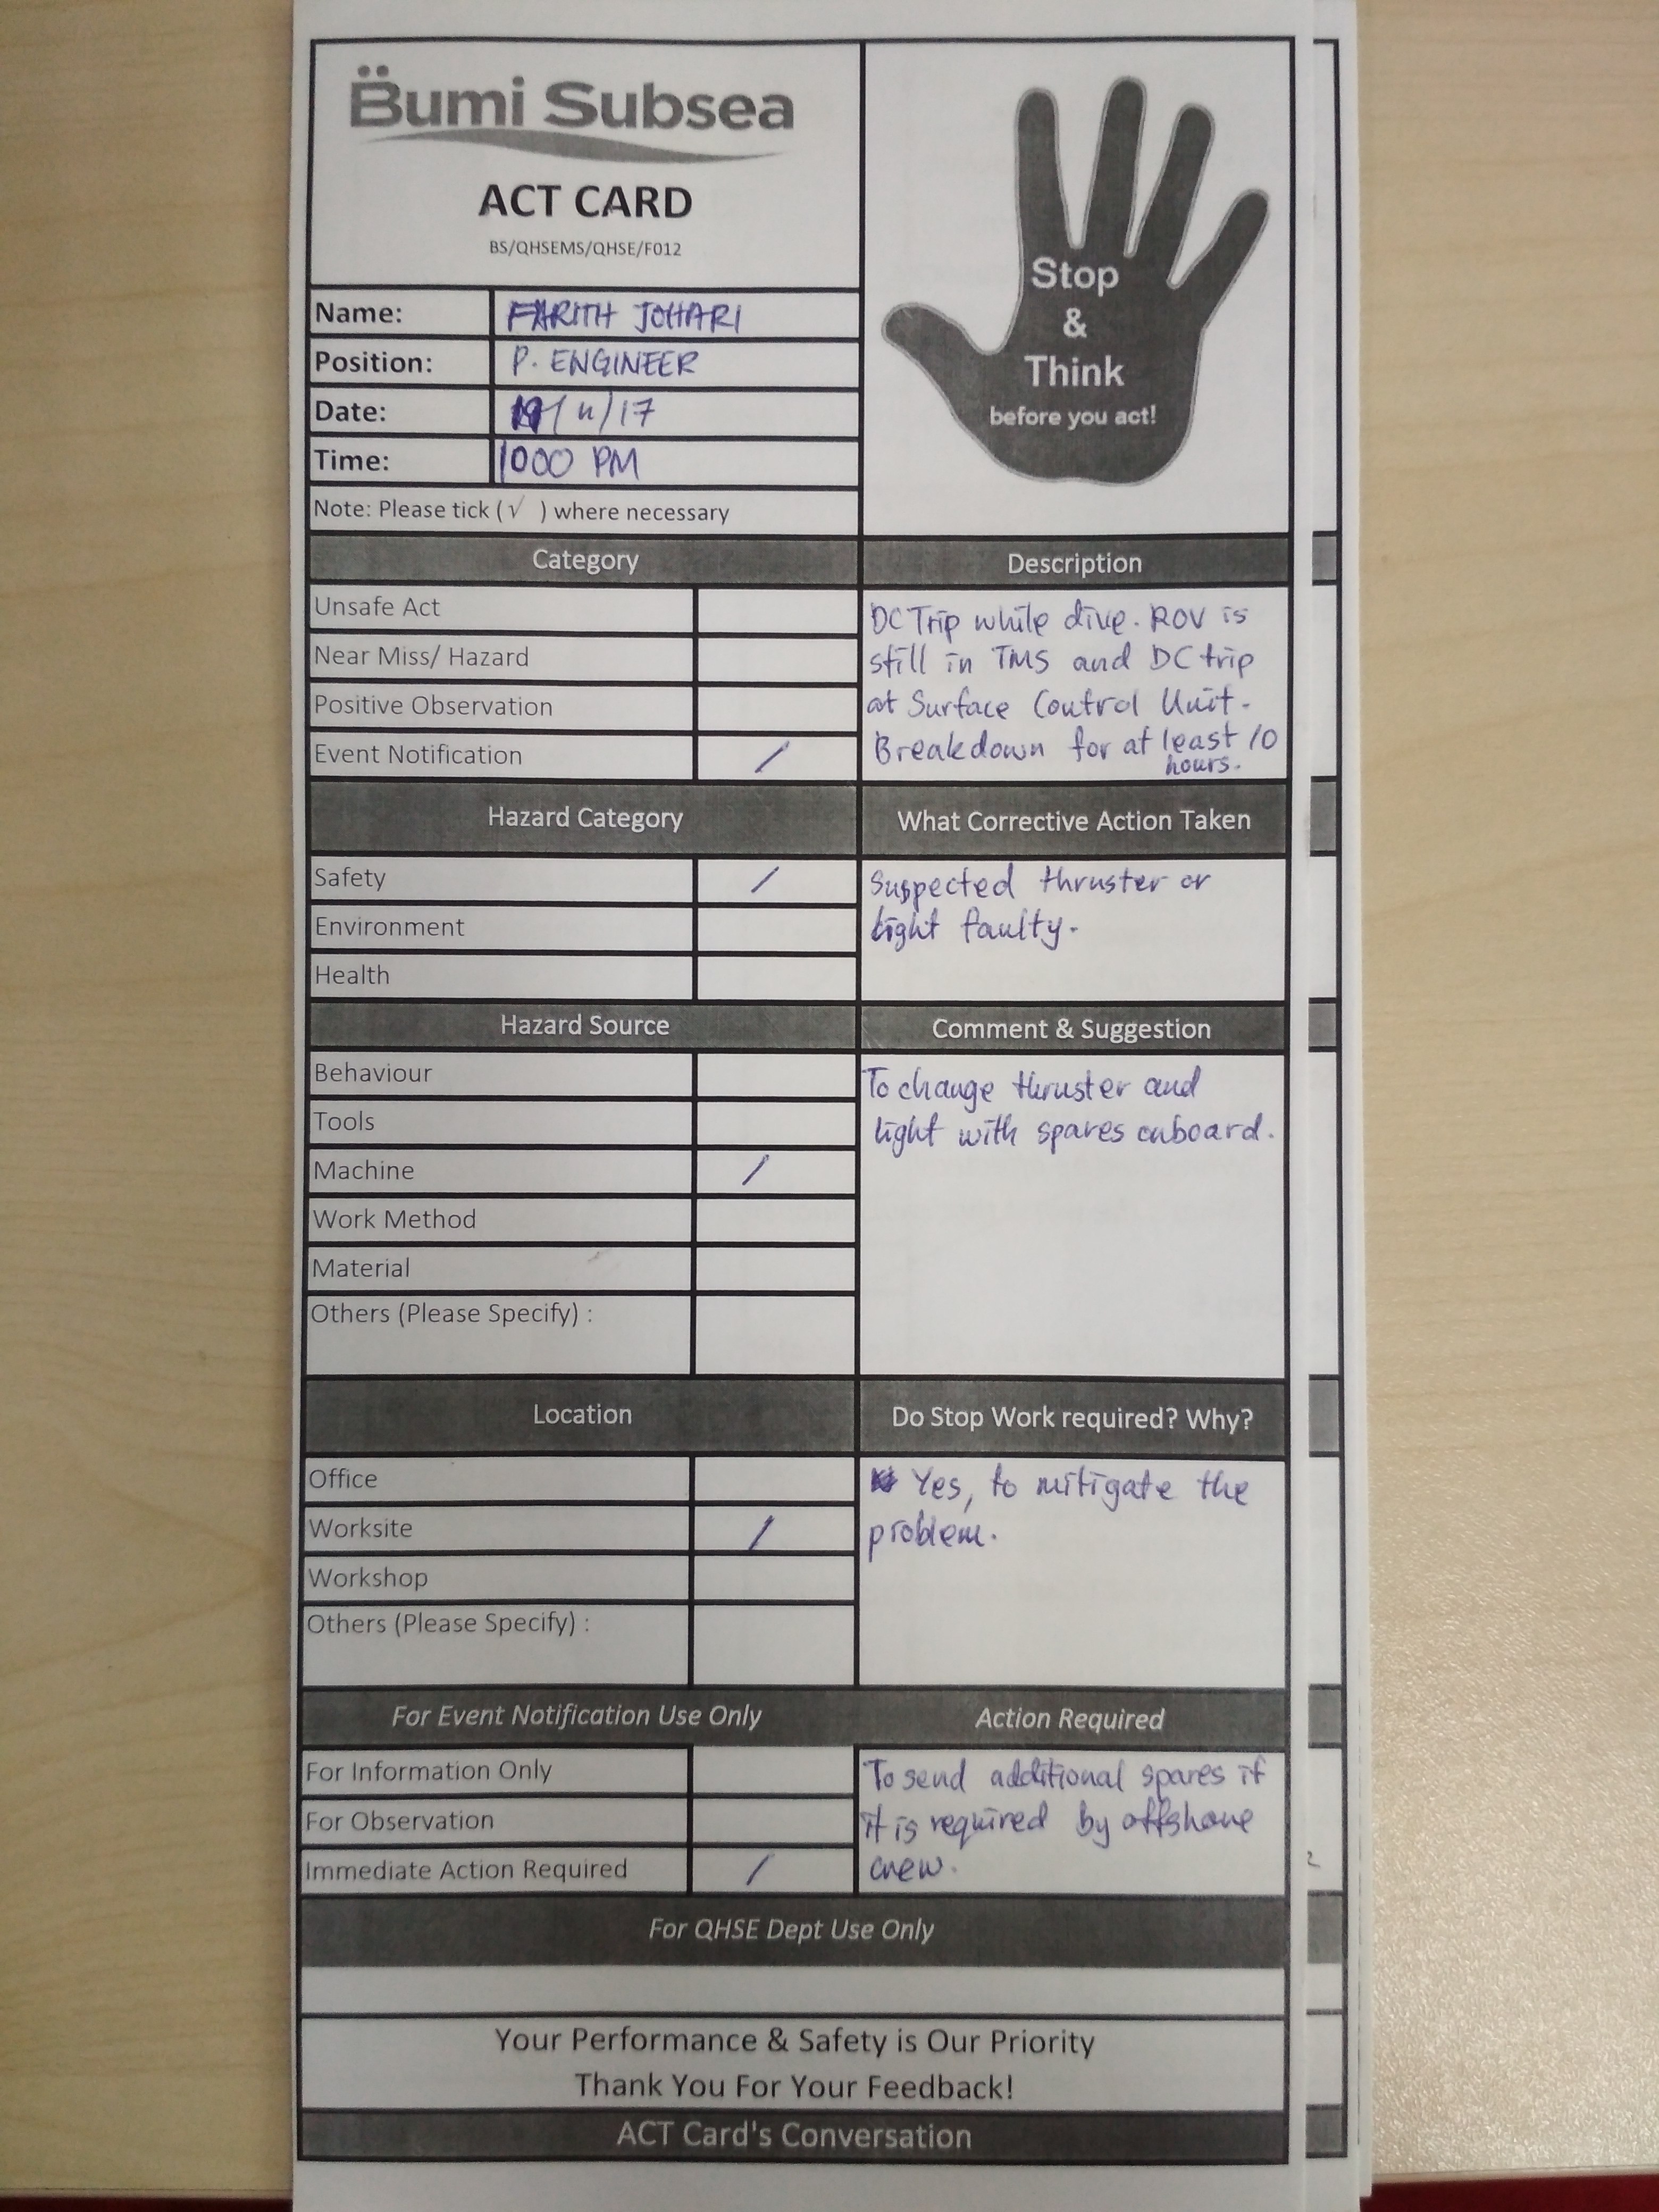 Bumi Subsea
ACT CARD
BS/QHSEMS/QHSE/F012
Stop
&
Think
before you act!
Name: FARITH JOHARI
Position: P. ENGINEER
Date: /11/17
Time: 1000 PM
Note: Please tick (√ ) where necessary
Category
Description
Unsafe Act
Near Miss/ Hazard
Positive Observation
Event Notification /
DC Trip while dive. ROV is
still in TMS and DC trip
at Surface Control Unit.
Breakdown for at least 10
hours.
Hazard Category
What Corrective Action Taken
Safety /
Environment
Health
Suspected thruster or
light faulty.
Hazard Source
Comment & Suggestion
Behaviour
Tools
Machine /
Work Method
Material
Others (Please Specify) :
To change thruster and
light with spares onboard.
Location
Do Stop Work required? Why?
Office
Worksite /
Workshop
Others (Please Specify) :
Yes, to mitigate the
problem.
For Event Notification Use Only
Action Required
For Information Only
For Observation
Immediate Action Required /
To send additional spares if
it is required by offshore
crew.
For QHSE Dept Use Only
Your Performance & Safety is Our Priority
Thank You For Your Feedback!
ACT Card's Conversation